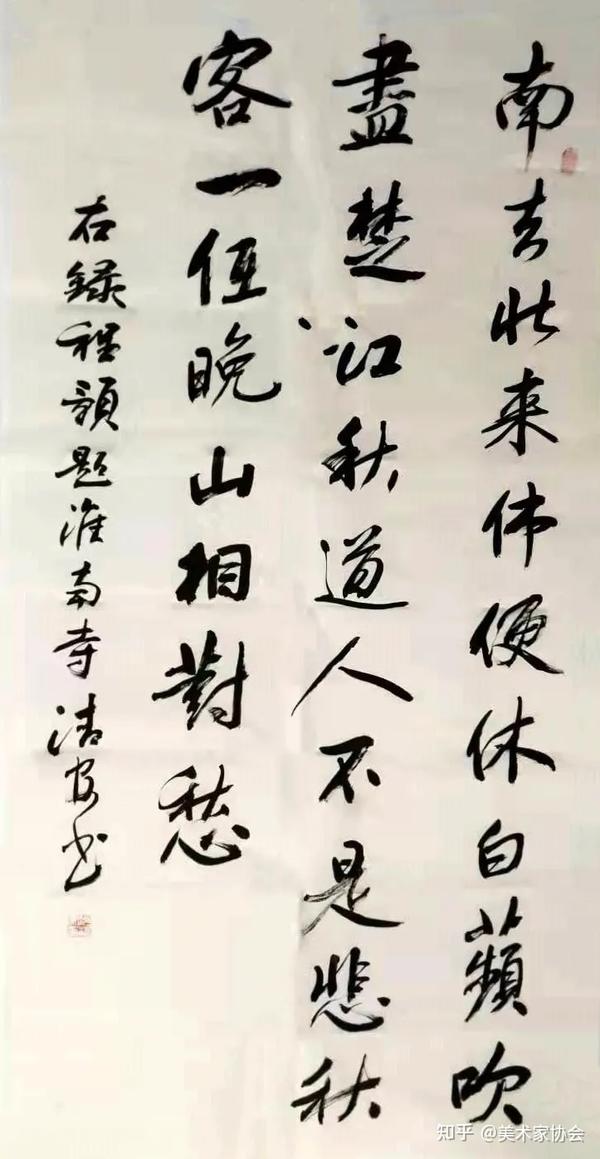 南去北来休便休白蘋吹
盡楚江秋道人不是悲秋
客一任晚山相對愁
右録程顥題淮南寺清安书
知乎 @美术家协会